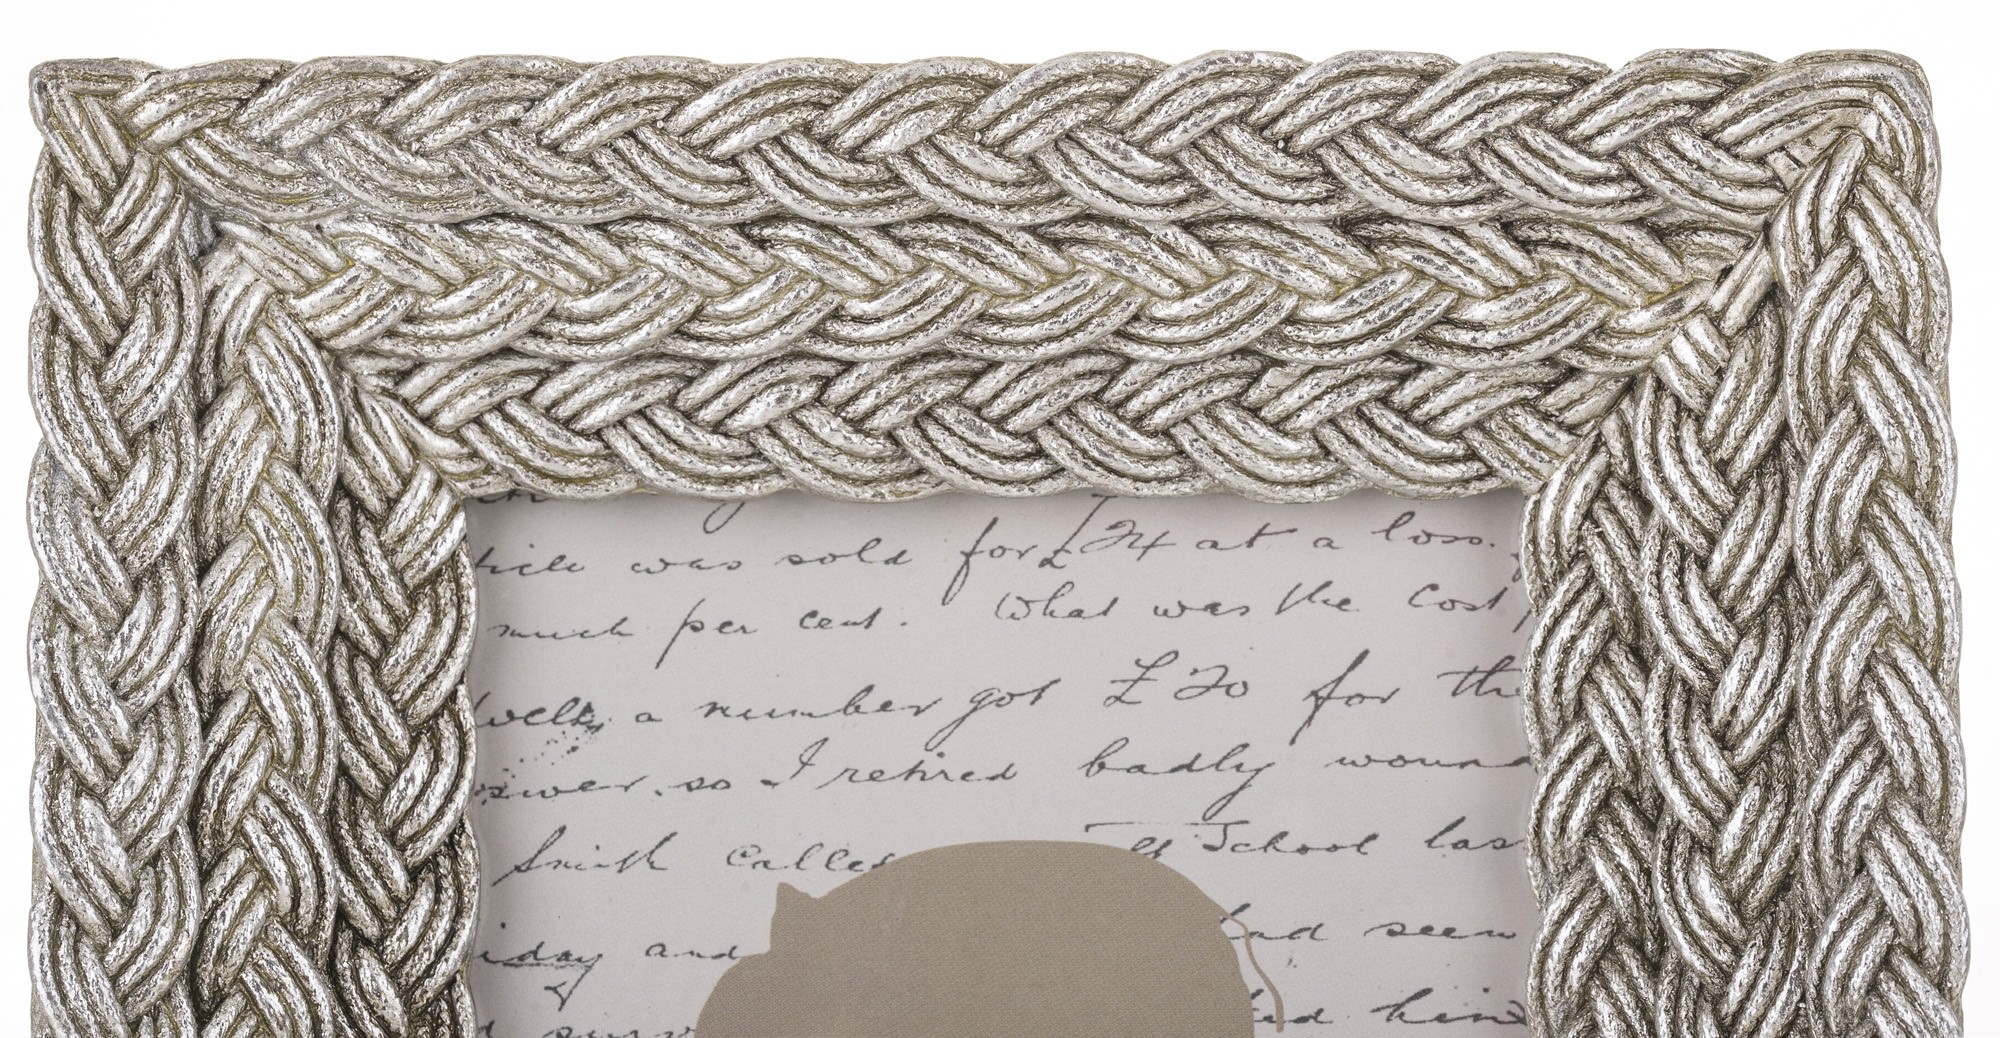 was sold for £24 at a loss.
much per cent. What was the Cost
a number got £20 for the
so I retired badly wound
Smith Called School las
iday and had seen
him